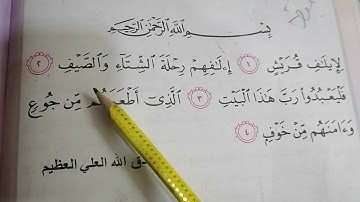 بِسْمِ ٱللَّهِ ٱلرَّحْمَٰنِ ٱلرَّحِيمِ
لِإِيلَٰفِ قُرَيْشٍ ١ إِۦلَٰفِهِمْ رِحْلَةَ ٱلشِّتَآءِ وَٱلصَّيْفِ ٢
فَلْيَعْبُدُوا۟ رَبَّ هَٰذَا ٱلْبَيْتِ ٣ ٱلَّذِىٓ أَطْعَمَهُم مِّن جُوعٍ
وَءَامَنَهُم مِّنْ خَوْفٍۭ ٤
الله العلي العظيم